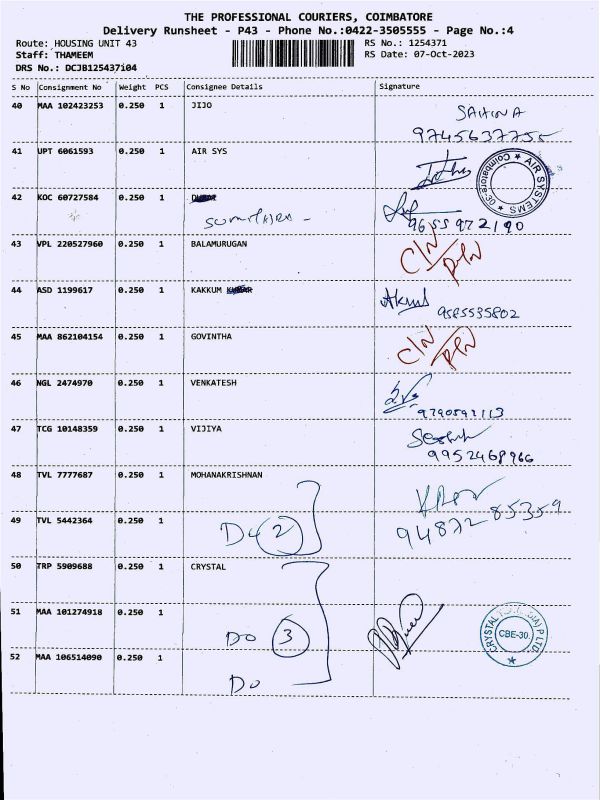 THE PROFESSIONAL COURIERS, COIMBATORE
Delivery Runsheet - P43 - Phone No.:0422-3505555 - Page No.:4
Route: HOUSING UNIT 43 RS No.: 1254371
Staff: THAMEEM RS Date: 07-Oct-2023
DRS No.: DCJB125437i04
S No Consignment No Weight PCS Consignee Details Signature
40 MAA 102423253 0.250 1 JIJO
9745637755
41 UPT 6061593 0.250 1 AIR SYS
AIR SYSTEMS ★ Coimbatore-30 ★
42 KOC 60727584 0.250 1
9655972190
43 VPL 220527960 0.250 1 BALAMURUGAN
C/N
44 ASD 1199617 0.250 1 KAKKUM KUMAR
9585535802
45 MAA 862104154 0.250 1 GOVINTHA
C/N
46 NGL 2474970 0.250 1 VENKATESH
9790592113
47 TCG 10148359 0.250 1 VIJIYA
9952468966
48 TVL 7777687 0.250 1 MOHANAKRISHNAN
49 TVL 5442364 0.250 1 Do 2
9487285359
50 TRP 5909688 0.250 1 CRYSTAL
51 MAA 101274918 0.250 1
Do 3
CBE-30.
52 MAA 106514090 0.250 1
Do